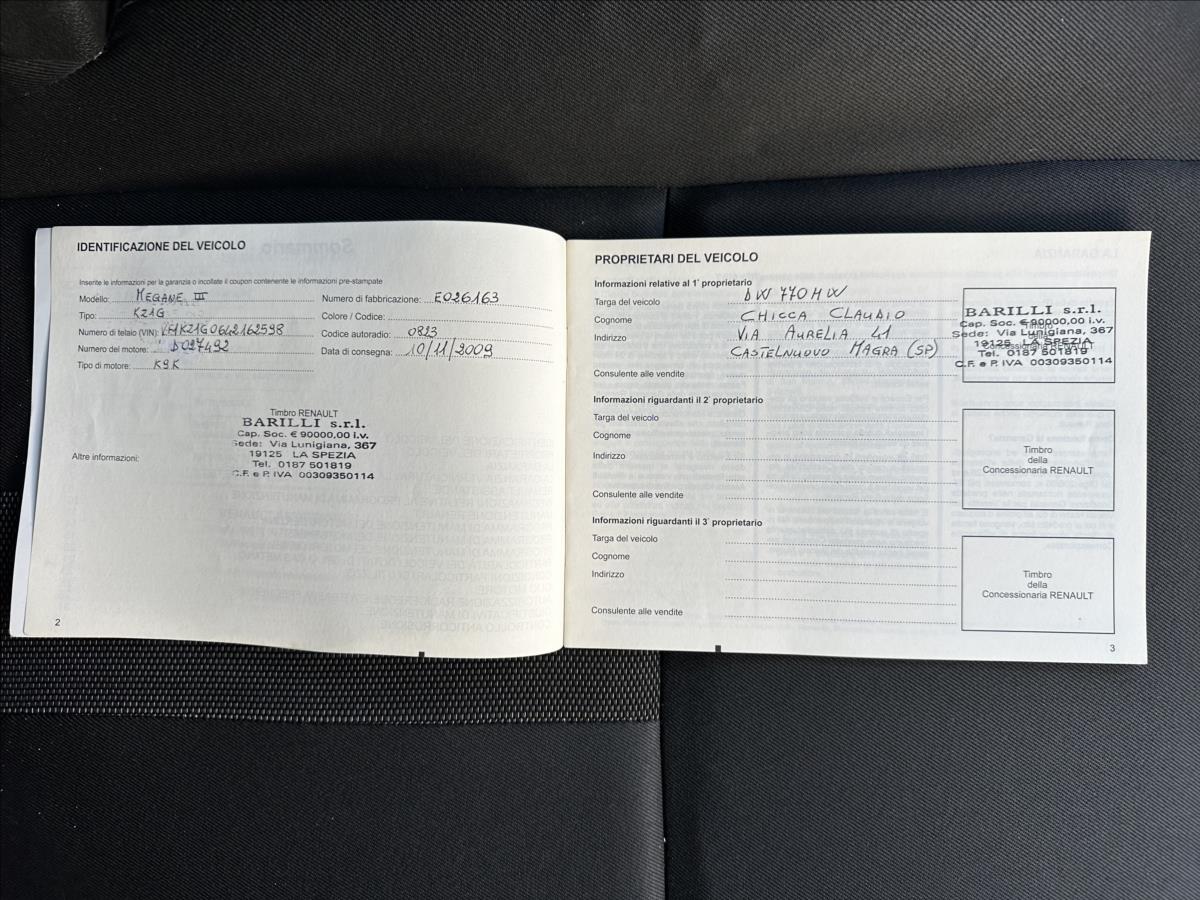 IDENTIFICAZIONE DEL VEICOLO
Inserite le informazioni per la garanzia o incollate il coupon contenente le informazioni pre-stampate
Modello: MEGANE III
Tipo: KZ1G
Numero di telaio (VIN): VF1KZ1G0642162598
Numero del motore: D027492
Tipo di motore: K9K
Numero di fabbricazione: E026163
Colore / Codice:
Codice autoradio: 0823
Data di consegna: 10/11/2009
Timbro RENAULT
BARILLI s.r.l.
Cap. Soc. € 90000,00 i.v.
Sede: Via Lunigiana, 367
19125 LA SPEZIA
Tel. 0187 501819
C.F. e P. IVA 00309350114
Altre informazioni:
2
PROPRIETARI DEL VEICOLO
Informazioni relative al 1° proprietario
Targa del veicolo DW 770HW
Cognome CHICCA CLAUDIO
Indirizzo VIA AURELIA 41
CASTELNUOVO MAGRA (SP)
Consulente alle vendite
BARILLI s.r.l.
Cap. Soc. € 90000,00 i.v.
Sede: Via Lunigiana, 367
19125 LA SPEZIA
Tel. 0187 501819
C.F. e P. IVA 00309350114
Informazioni riguardanti il 2° proprietario
Targa del veicolo
Cognome
Indirizzo
Consulente alle vendite
Timbro
della
Concessionaria RENAULT
Informazioni riguardanti il 3° proprietario
Targa del veicolo
Cognome
Indirizzo
Consulente alle vendite
Timbro
della
Concessionaria RENAULT
3